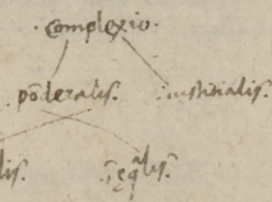 ·complexio·
põderalis· ·iustitialis·
lis·